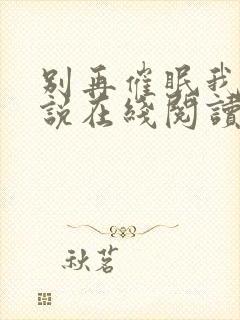 别再催眠我
說在綫閱讀
秋茗